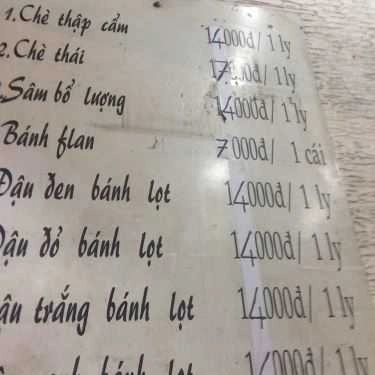 1.Chè thập cẩm 14000đ/ 1 ly
2.Chè thái 17000đ/ 1 ly
.Sâm bổ lượng 14000đ/ 1 ly
Bánh flan 7 000đ/ 1 cái
Đậu đen bánh lọt 14000đ/ 1 ly
Đậu đỏ bánh lọt 14000đ/ 1 ly
ậu trắng bánh lọt 14000đ/ 1 ly
bánh lọt 14000đ/ 1 ly